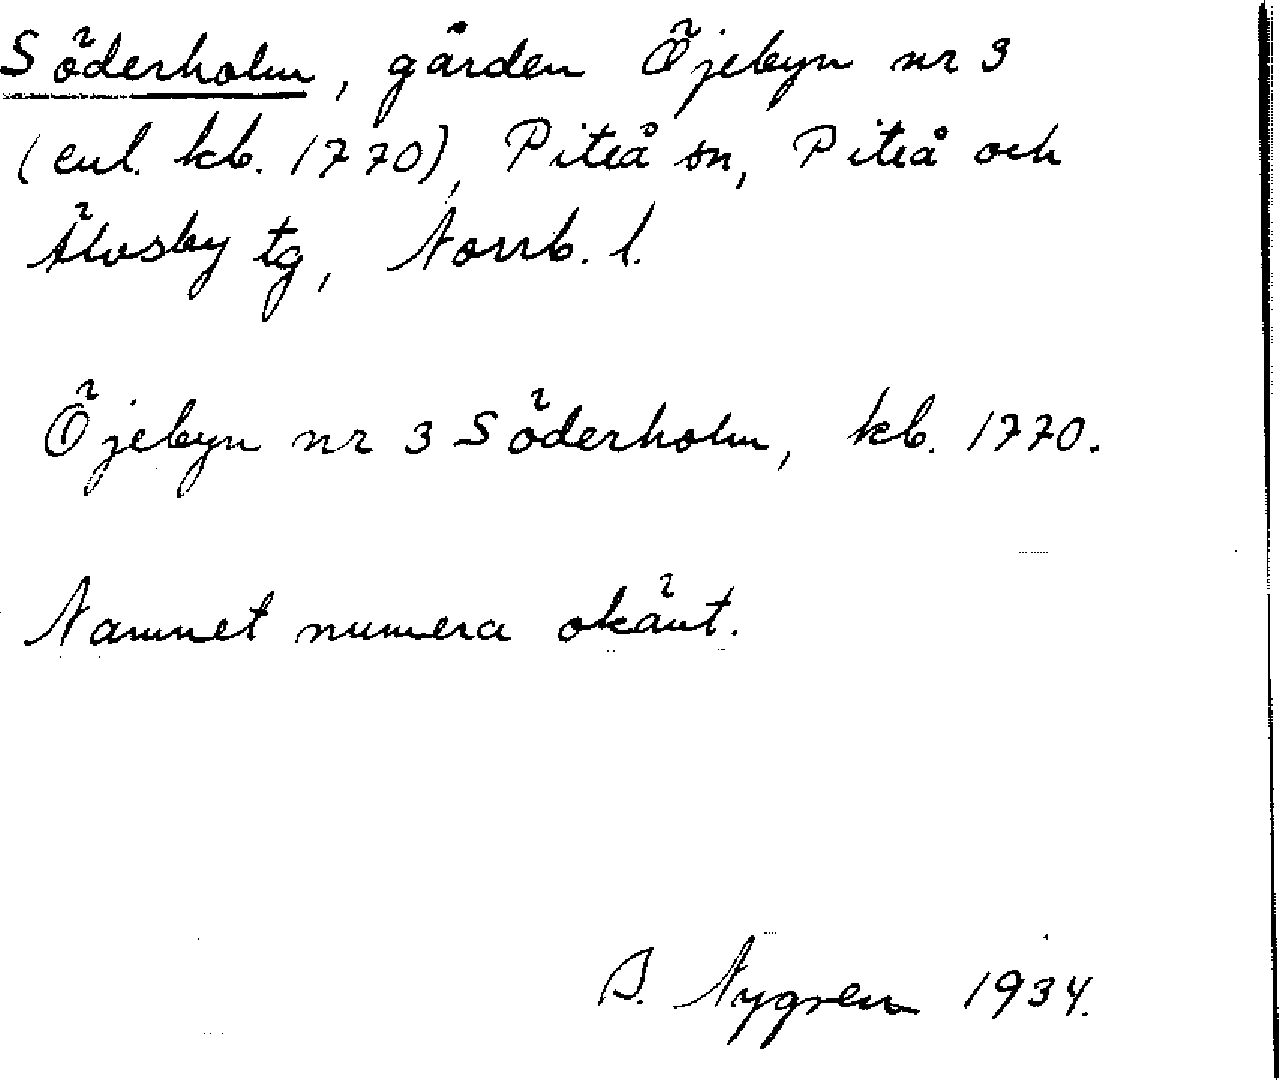 Söderholm, gården Öjebyn nr 3
(enl. kb. 1770), Piteå sn, Piteå och
Älvsby tg, Norrb. l.
Öjebyn nr 3 Söderholm, kb. 1770.
Namnet numera okänt.
B. Nygren 1934.